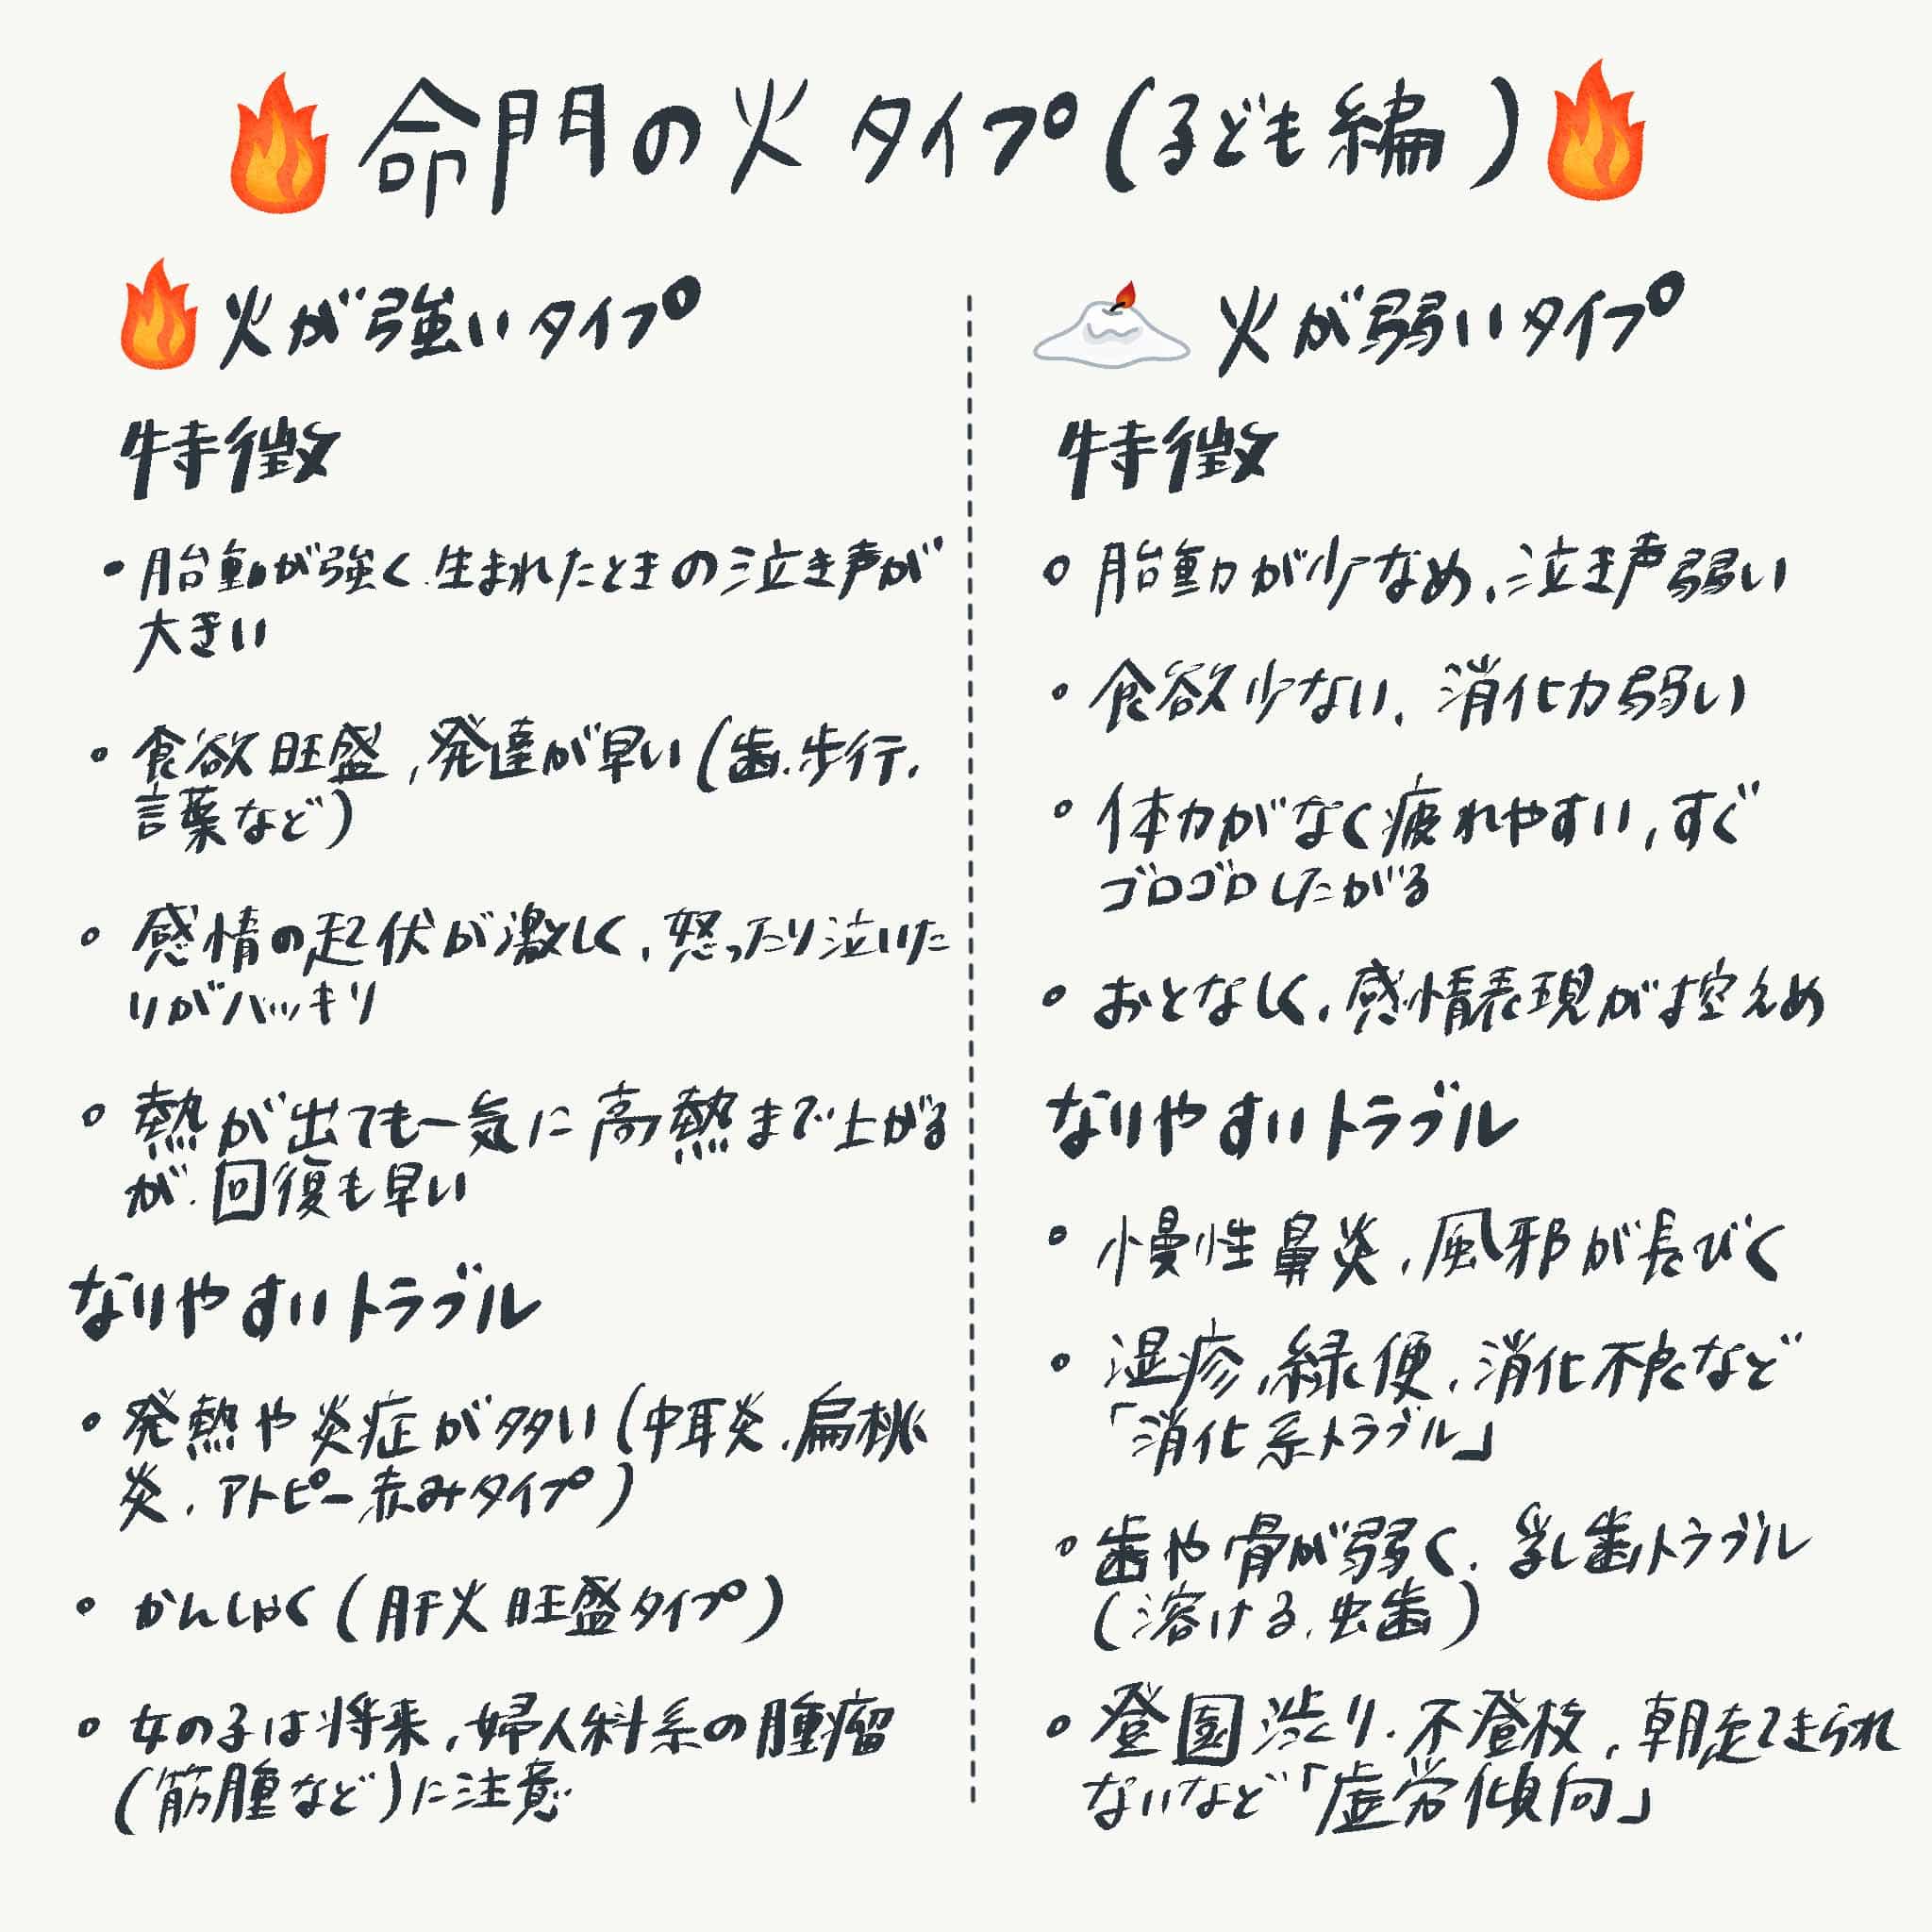 命門の火 タイプ(子ども編)
火が強いタイプ
特徴
・胎動が強く、生まれたときの泣き声が
大きい
・食欲旺盛、発達が早い(歯、歩行、
言葉など)
・感情の起伏が激しく、怒ったり泣いた
りがハッキリ
・熱が出ても一気に高熱まで上がる
が、回復も早い
なりやすいトラブル
・発熱や炎症が多い(中耳炎、扁桃
炎、アトピー赤みタイプ)
・かんしゃく(肝火旺盛タイプ)
・女の子は将来、婦人科系の腫瘤
(筋腫など)に注意
火が弱いタイプ
特徴
・胎動が少なめ、泣き声弱い
・食欲少ない、消化力弱い
・体力がなく疲れやすい、すぐ
ゴロゴロしたがる
・おとなしく、感情表現が控えめ
なりやすいトラブル
・慢性鼻炎、風邪が長びく
・湿疹、緑便、消化不良など
「消化系トラブル」
・歯や骨が弱く、乳歯トラブル
(溶ける、虫歯)
・登園渋り、不登校、朝起きられ
ないなど「虚労傾向」